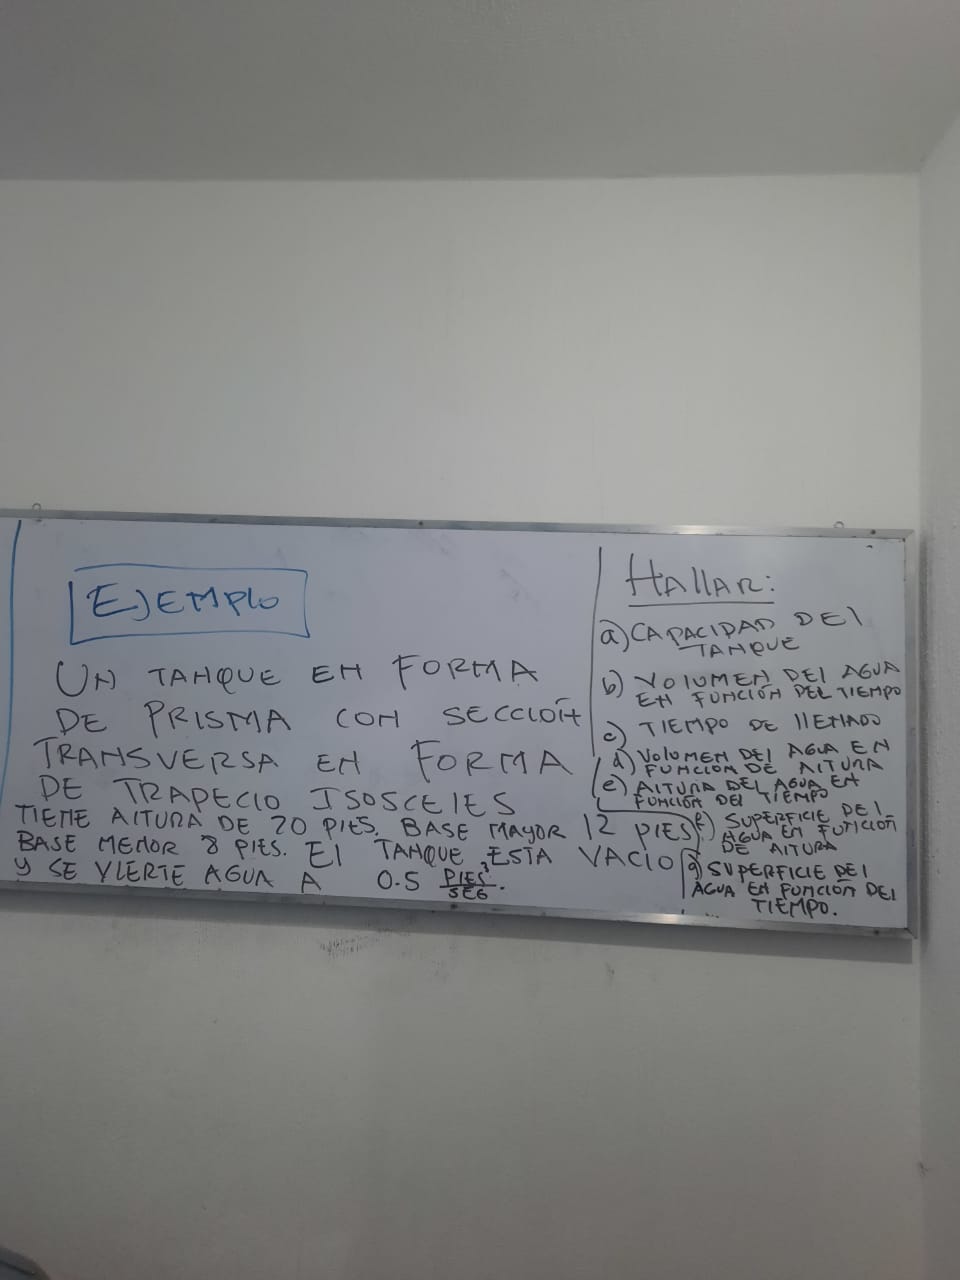 EJEMPLO
UN TANQUE EN FORMA
DE PRISMA CON SECCIÓN
TRANSVERSA EN FORMA
DE TRAPECIO ISOSCELES
TIENE ALTURA DE 20 PIES. BASE MAYOR 12 PIES,
BASE MENOR 8 PIES. El TANQUE ESTA VACIO
Y SE VIERTE AGUA A 0.5 PIES³/SEG.
HAllAR:
a) CAPACIDAD DEl
TANQUE
b) VOLUMEN DEl AGUA
EN FUNCIÓN DEL TIEMPO
c) TIEMPO DE llENADO
d) VOLUMEN DEl AGUA EN
FUNCIÓN DE AlTURA
e) AlTURA DEl AGUA EN
FUNCIÓN DEl TIEMPO
f) SUPERFICIE DEl
AGUA EN FUNCIÓN
DE AlTURA
g) SUPERFICIE DEl
AGUA EN FUNCIÓN DEl
TIEMPO.